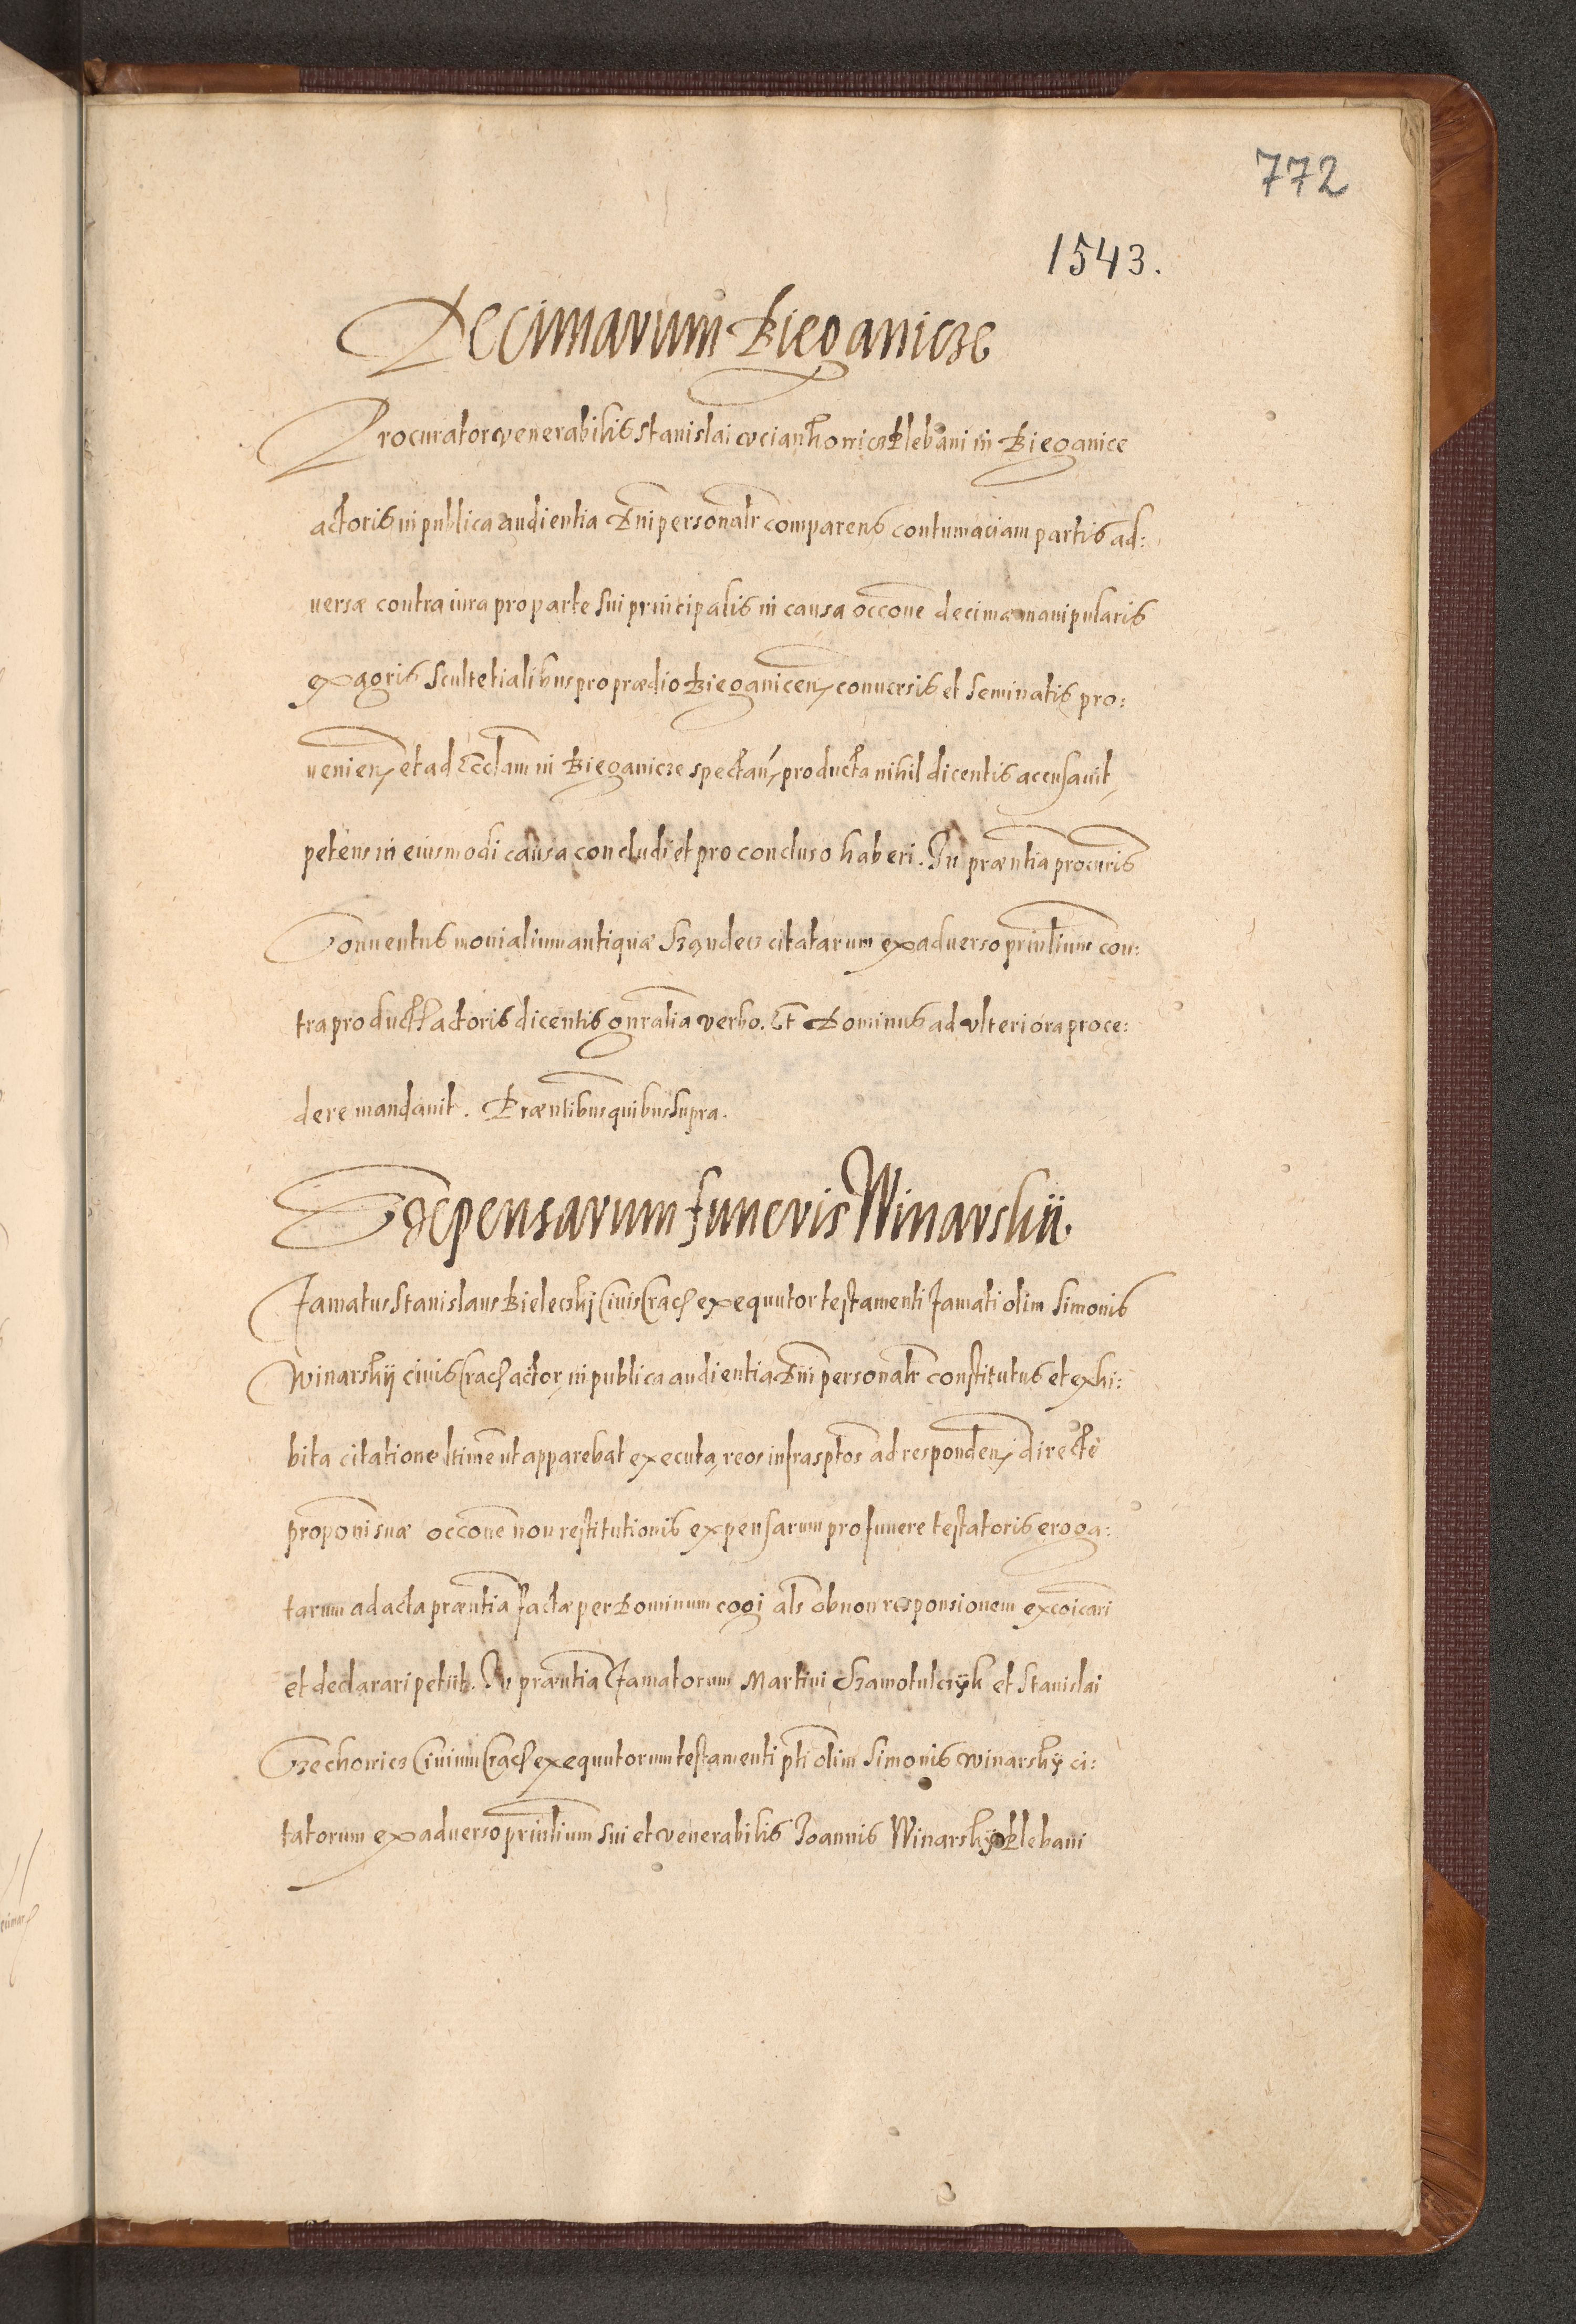 772
1543.
Decimarum Bieganicze
Procurator venerabilis Stanislai Plebani in Bieganice
actoris in publica audientia Dni personalr comparens contumaciam partis ad:
versæ contra iura pro parte sui principalis in causa occone decimæ manipularis
ex agris Scultetialibus pro prædio Bieganicen conversis et seminatis pro:
venien et ad Ecclam in Bieganicze spectan producta nihil dicentis accusavit,
petens in eiusmodi causa concludi et pro concluso haberi. In præntia procuris
Conventus monialium antiquæ Szandecz citatarum ex adverso prinlium con:
tra product actoris dicentis gnralia verbo. Et Dominus ad ulteriora proce:
dere mandavit. Præntibus quibus supra.
Expensarum funeris Winarskii.
Famatus Stanislaus Bieleczkj Civis Crac exequutor testamenti famati olim Simonis
Winarskij civis Crac actor, in publica audientia Dni personalr constitutus et exhi:
bita citatione ltime ut apparebat executa, reos infrasptos ad responden directe
proponi suæ occone non restitutionis expensarum pro funere testatoris eroga:
tarum ad acta præntia factæ per Dominum cogi als ob non responsionem excoicari
et declarari petiit. In præntia famatorum Martini Szamotulczyk et Stanislai
Czechowicz Civium Crac exequutorum testamenti pti olim Simonis Winarskÿ ci:
tatorum ex adverso prinlium sui et venerabilis Joannis Winarskÿ Plebani